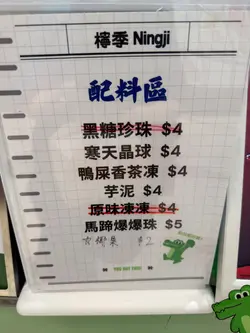 檸季 Ningji
配料區
黑糖珍珠 $4
寒天晶球 $4
鴨屎香茶凍 $4
芋泥 $4
原味凍凍 $4
馬蹄爆爆珠 $5
$2